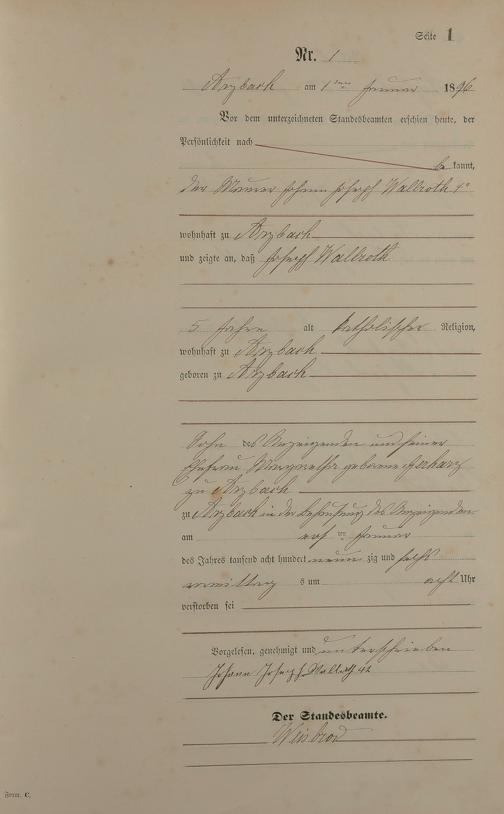 Seite 1
Nr. 1
Arzbach am 1ten Januar 1896
Vor dem unterzeichneten Standesbeamten erschien heute, der
Persönlichkeit nach
bekannt,
der Maurer Johann Joseph Wallroth 4r
wohnhaft zu Arzbach
und zeigte an, daß Joseph Wallroth
5 Jahre alt katholischer Religion,
wohnhaft zu Arzbach
geboren zu Arzbach
Sohn des Anzeigenden und seiner
Ehefrau Margaretha geborene
zu Arzbach
zu Arzbach in der Behausung des Anzeigenden
am Januar
des Jahres tausend acht hundert neunzig und sechs
vormittags um acht Uhr
verstorben sei
Vorgelesen, genehmigt und unterschrieben
Johann Joseph Wallroth 4r
Der Standesbeamte.
Weisbrod
Form. C.